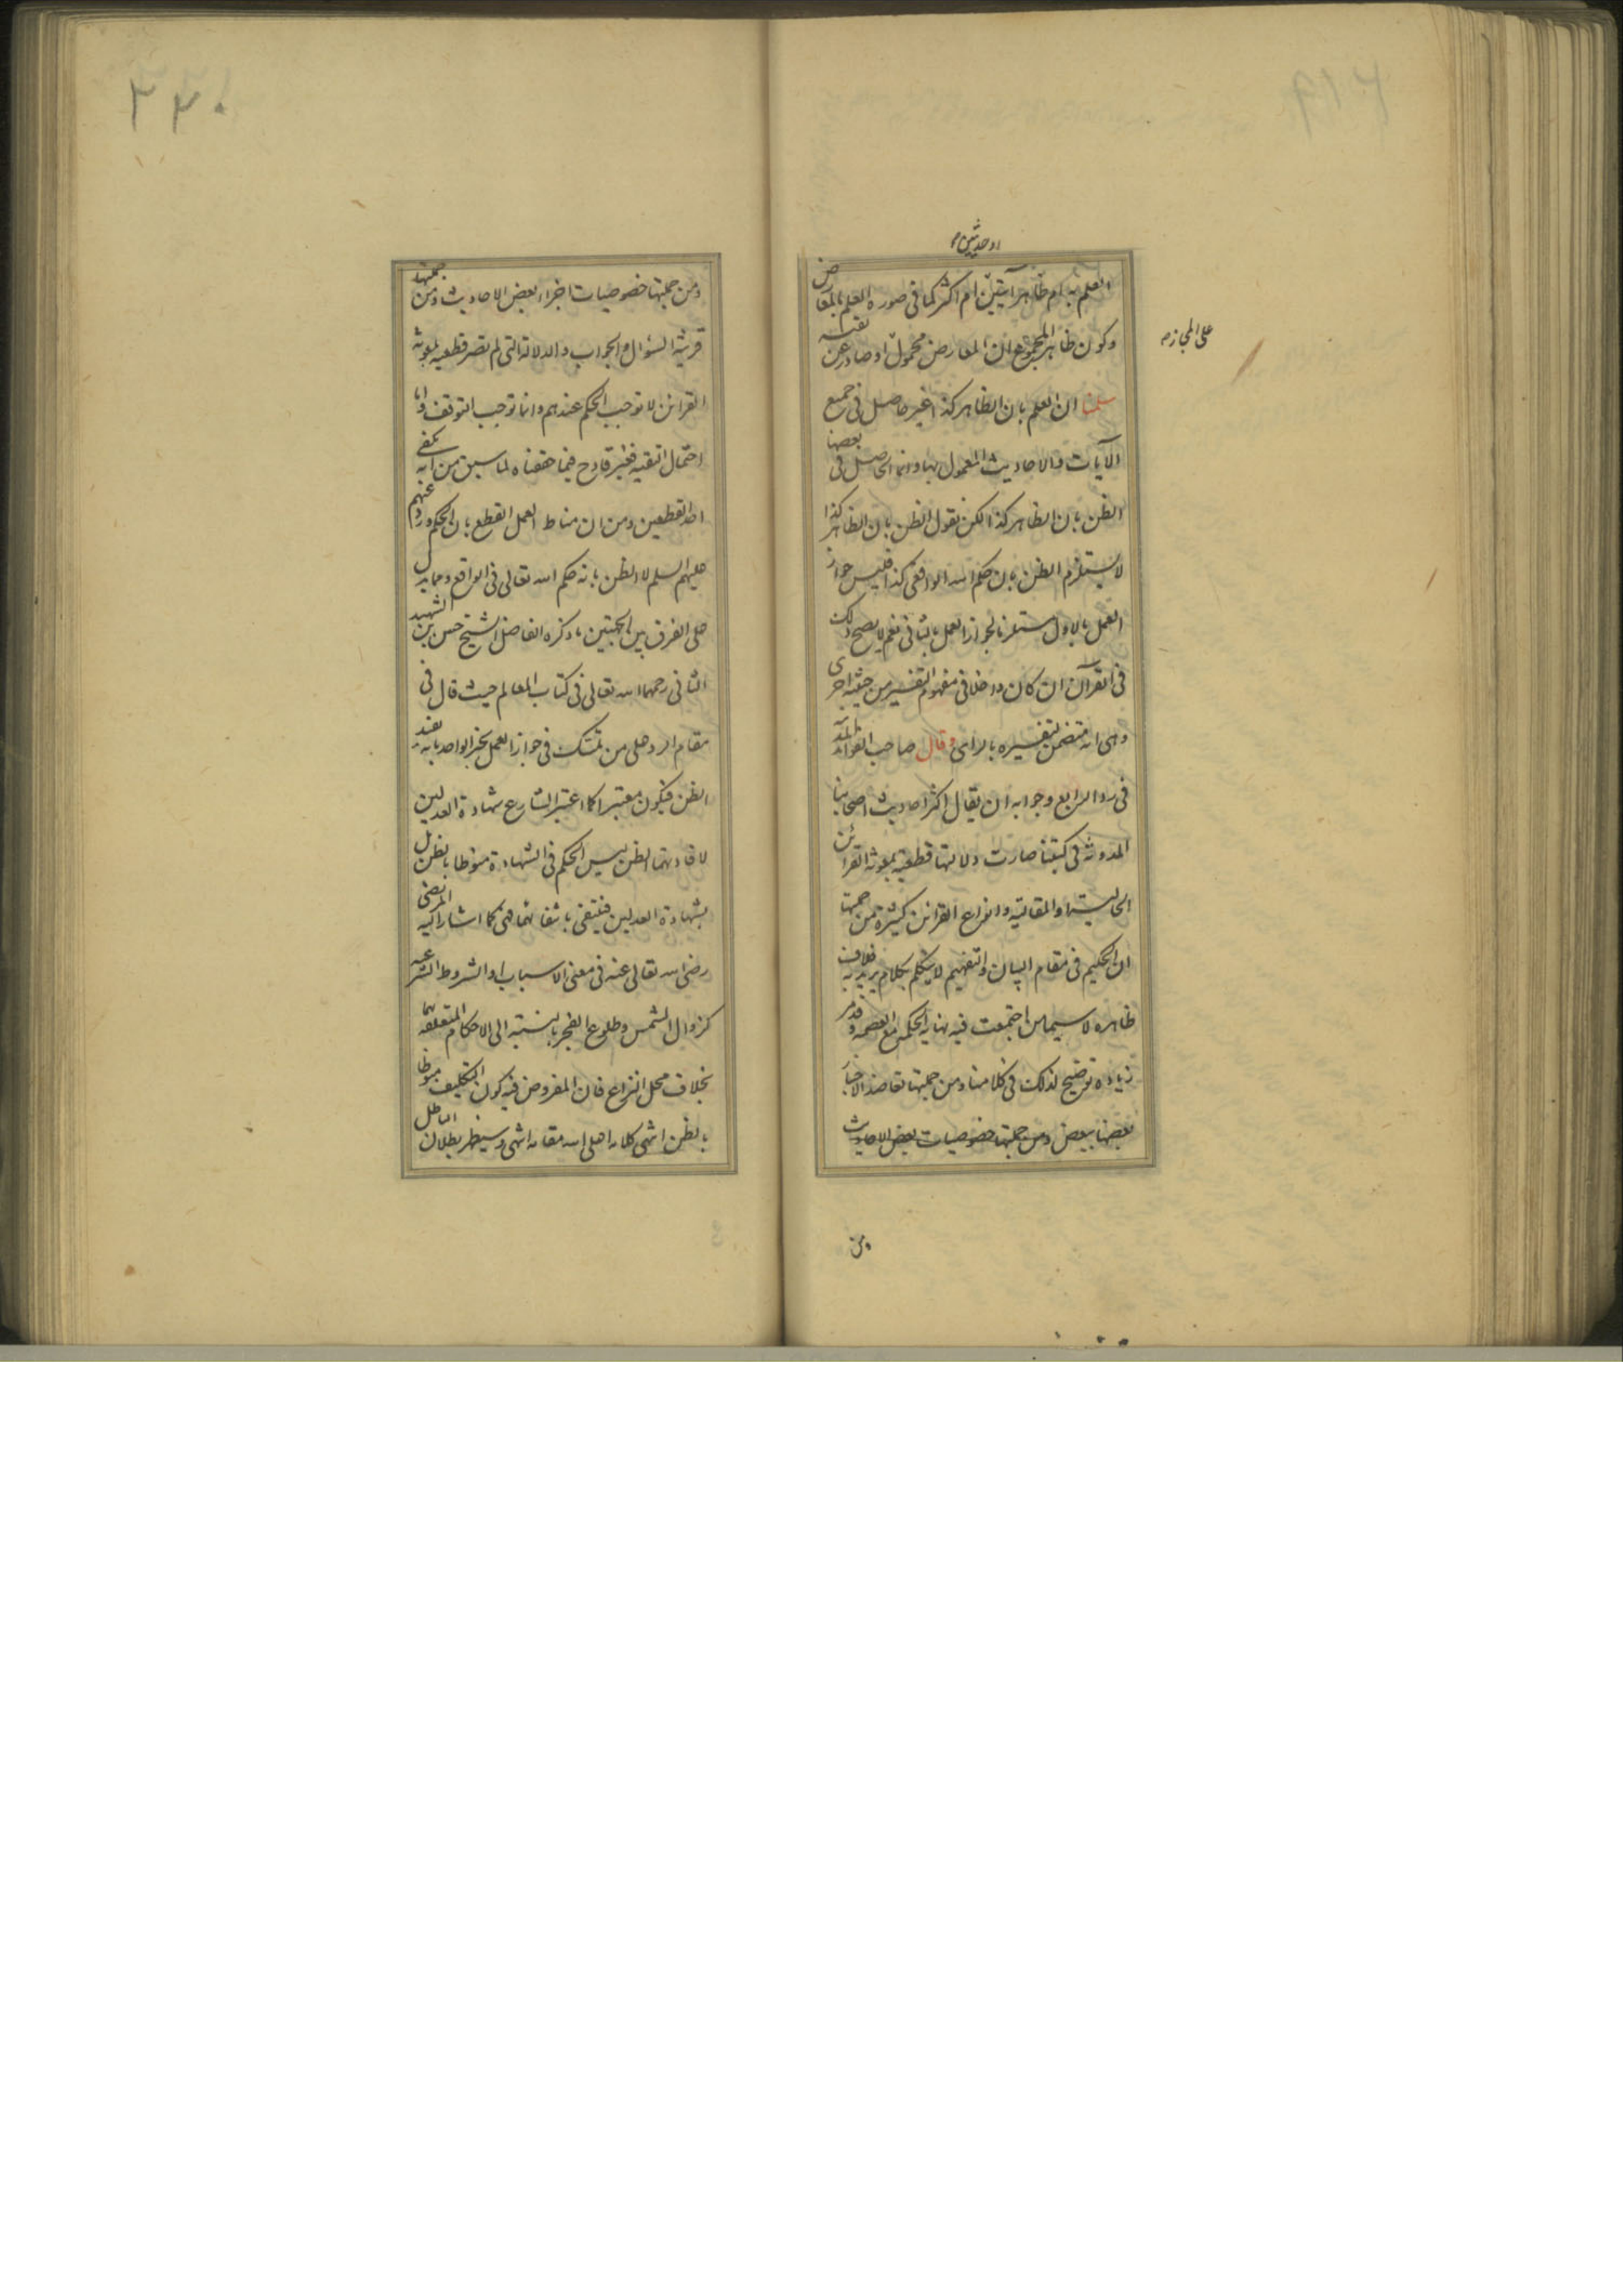 او حديثين م
العلم به ام ظاهر آيتين ام اكثر كما فى صورة العلم بالمعارض
وكون ظاهر المجموع ان المعارض محمول او صادر عن تقيه
على المجاز م
سلمنا ان العلم بان الظاهر كذا غير حاصل فى جميع
الآيات والاحاديث المعمول بها وانما الحاصل فى بعضها
الظن بان الظاهر كذا لكن نقول الظن بان الظاهر كذا
لا يستلزم الظن بان حكم الله الواقعى كذا فليس جواز
العمل بالاول مستلزما لجواز العمل بالثانى نعم لا يصح ذلك
فى القرآن ان كان داخلا فى مفهوم التفسير من حيثيه اخرى
وهى انه متضمن لتفسيره بالراى وقال صاحب الفوائد المدنيه
فى رد الرابع وجوابه ان يقال اكثر احاديث اصحابنا
المدونة فى كتبنا صارت دلالتها قطعية بمعونة القرائن
الحالية او المقالية وانواع القرائن كثيرة من جملتها
ان الحكيم فى مقام البيان والتفهيم لا يتكلم بكلام يريد به خلاف
ظاهره لا سيما من اجتمعت فيه نهاية الحكمه مع العصمه وقد مر
زيادة توضيح لذلك فى كلامنا ومن جملتها تعاضد الاخبار
بعضها ببعض ومن جملتها خصوصيات بعض الاحاديث
ومن
٣٣٠
ومن جملتها خصوصيات اجزاء بعض الاحاديث ومن جملتها
قرينة السؤال والجواب والدلالة التى لم تصر قطعيه بمعونة
القرائن لا توجب الحكم عندهم وانما توجب التوقف واما
احتمال التقيه فغير قادح فيما حققناه لما سبق من انه يكفى
احد القطعين ومن ان مناط العمل القطع بان الحكم ورد عنهم
عليهم السلم لا الظن بانه حكم الله تعالى فى الواقع ومما يدل
على الفرق بين الجهتين ما ذكره الفاضل الشيخ حسن بن الشهيد
الثانى رحمهما الله تعالى فى كتاب المعالم حيث قال فى
مقام الرد على من تمسك فى جواز العمل بخبر الواحد بانه يفيد
الظن فيكون معتبرا كما اعتبر الشارع شهادة العدلين
لافادتهما الظن ليس الحكم فى الشهادة منوطا بالظن بل
بشهادة العدلين فينتفى بانتفائهما فهى كما اشار اليه المرتضى
رضى الله تعالى عنه فى معنى الاسباب او الشروط الشرعيه
كزوال الشمس وطلوع الفجر بالنسبة الى الاحكام المتعلقه بهما
بخلاف محل النزاع فان المفروض فيه كون التكليف منوطا
بالظن انتهى كلامه اعلى الله مقامه انتهى وسيظهر بطلان الباطل